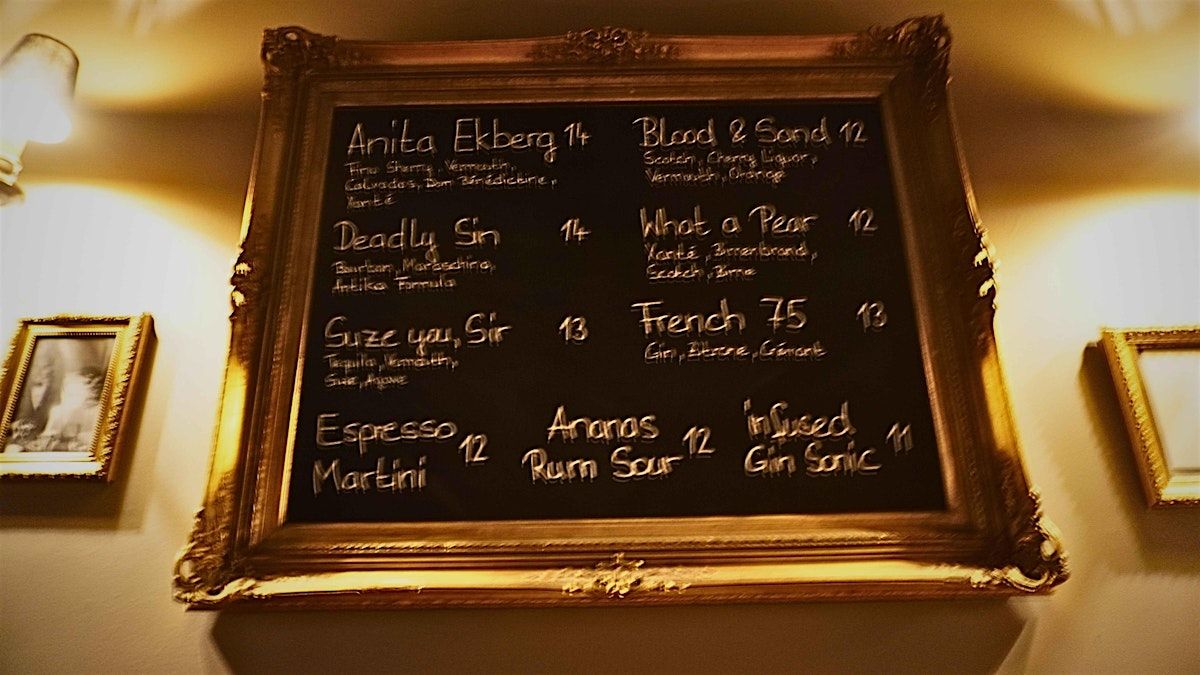 Anita Ekberg 14
Fino Sherry, Vermouth,
Calvados, Dom Bénédictine,
Xanté
Deadly Sin 14
Bourbon, Maraschino,
Antika Formula
Suze you, Sir 13
Tequila, Vermouth,
Suze, Agave
Blood & Sand 12
Scotch, Cherry Liquor,
Vermouth, Orange
What a Pear 12
Xanté, Birnenbrand,
Scotch, Birne
French 75 13
Gin, Zitrone, Crémant
Espresso
Martini 12
Ananas
Rum Sour 12
infused
Gin Sonic 11